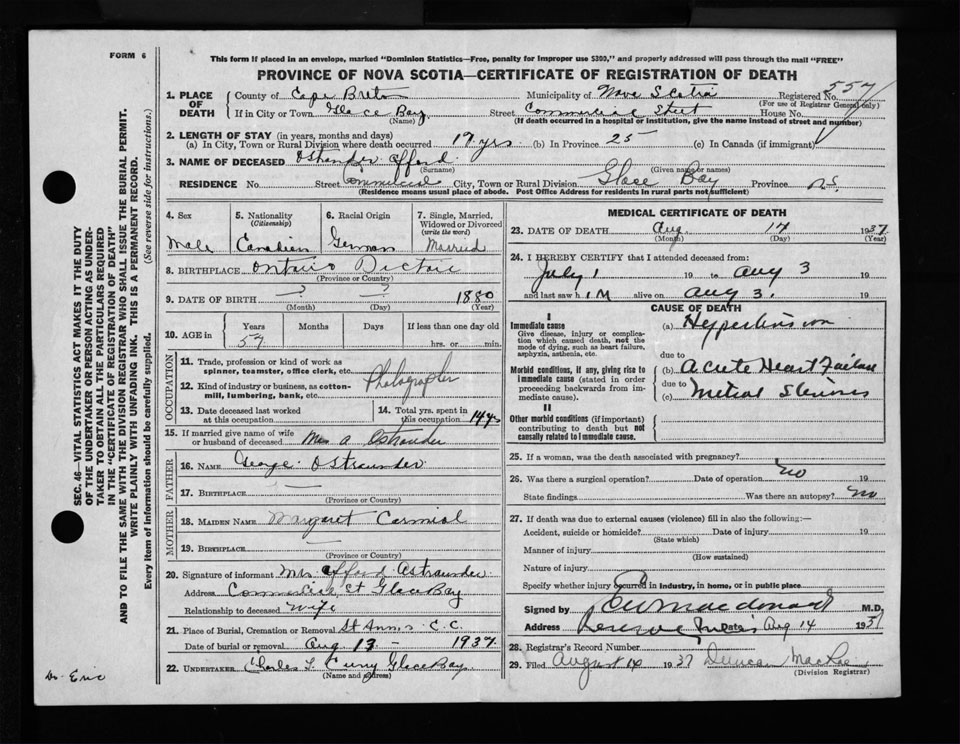 FORM 6
This form if placed in an envelope, marked "Dominion Statistics—Free, penalty for improper use $300," and properly addressed will pass through the mail "FREE"
PROVINCE OF NOVA SCOTIA—CERTIFICATE OF REGISTRATION OF DEATH
SEC. 46—VITAL STATISTICS ACT MAKES IT THE DUTY
OF THE UNDERTAKER OR PERSON ACTING AS UNDER-
TAKER TO OBTAIN ALL THE PARTICULARS REQUIRED
IN THE "CERTIFICATE OF REGISTRATION OF DEATH"
AND TO FILE THE SAME WITH THE DIVISION REGISTRAR WHO SHALL ISSUE THE BURIAL PERMIT.
WRITE PLAINLY WITH UNFADING INK. THIS IS A PERMANENT RECORD.
Every item of information should be carefully supplied. (See reverse side for instructions.)
1. PLACE OF DEATH
County of Cape Breton Municipality of Nova Scotia Registered No. 557
(For use of Registrar General only)
If in City or Town Glace Bay Street Commercial Street House No.
(Name) (If death occurred in a hospital or institution, give the name instead of street and number)
2. LENGTH OF STAY (in years, months and days)
(a) In City, Town or Rural Division where death occurred 17 yrs (b) In Province 25 (c) In Canada (if immigrant)
3. NAME OF DECEASED Ostrander Afford
(Surname) (Given name or names)
RESIDENCE No. Street Commercial City, Town or Rural Division Glace Bay Province N.S.
(Residence means usual place of abode. Post Office Address for residents in rural parts not sufficient)
4. Sex 5. Nationality (Citizenship) 6. Racial Origin 7. Single, Married, Widowed or Divorced (write the word)
Male Canadien German Married
8. BIRTHPLACE Ontario
(Province or Country)
9. DATE OF BIRTH ? ? 1880
(Month) (Day) (Year)
10. AGE in Years Months Days If less than one day old
57 hrs. or min.
OCCUPATION
11. Trade, profession or kind of work as spinner, teamster, office clerk, etc.
12. Kind of industry or business, as cotton-mill, lumbering, bank, etc.
Photographer
13. Date deceased last worked at this occupation
14. Total yrs. spent in this occupation 14 yrs
15. If married give name of wife or husband of deceased Mrs A Ostrander
FATHER
16. NAME George Ostraunder
17. BIRTHPLACE —
(Province or Country)
MOTHER
18. MAIDEN NAME Margaret
19. BIRTHPLACE —
(Province or Country)
20. Signature of informant Mrs Afford Ostraunder
Address Commercial St Glace Bay
Relationship to deceased Wife
21. Place of Burial, Cremation or Removal St Ann,s C.C.
Date of burial or removal Aug 13 - 1937
22. UNDERTAKER Charles L Curry Glace Bay
(Name and address)
Dr Eric
MEDICAL CERTIFICATE OF DEATH
23. DATE OF DEATH Aug. 1937
(Month) (Day) (Year)
24. I HEREBY CERTIFY that I attended deceased from:
July 1 19 to Aug 3 19
and last saw h IM alive on Aug 3. 19
CAUSE OF DEATH
I
Immediate cause
Give disease, injury or complication which caused death, not the mode of dying, such as heart failure, asphyxia, asthenia, etc.
(a)
due to
Morbid conditions, if any, giving rise to immediate cause (stated in order proceeding backwards from immediate cause).
(b) Acute Heart Failure
due to
(c) Mitral
II
Other morbid conditions (if important) contributing to death but not causally related to immediate cause.
25. If a woman, was the death associated with pregnancy?
26. Was there a surgical operation? no Date of operation 19
State findings Was there an autopsy? no
27. If death was due to external causes (violence) fill in also the following:—
Accident, suicide or homicide? Date of injury 19
(State which)
Manner of injury
(How sustained)
Nature of injury
Specify whether injury occurred in industry, in home, or in public place
Signed by Macdonald M.D.
Address Reserve Mines Date Aug 14 1937
28. Registrar's Record Number
29. Filed August 14 1937 Duncan MacRae
(Division Registrar)